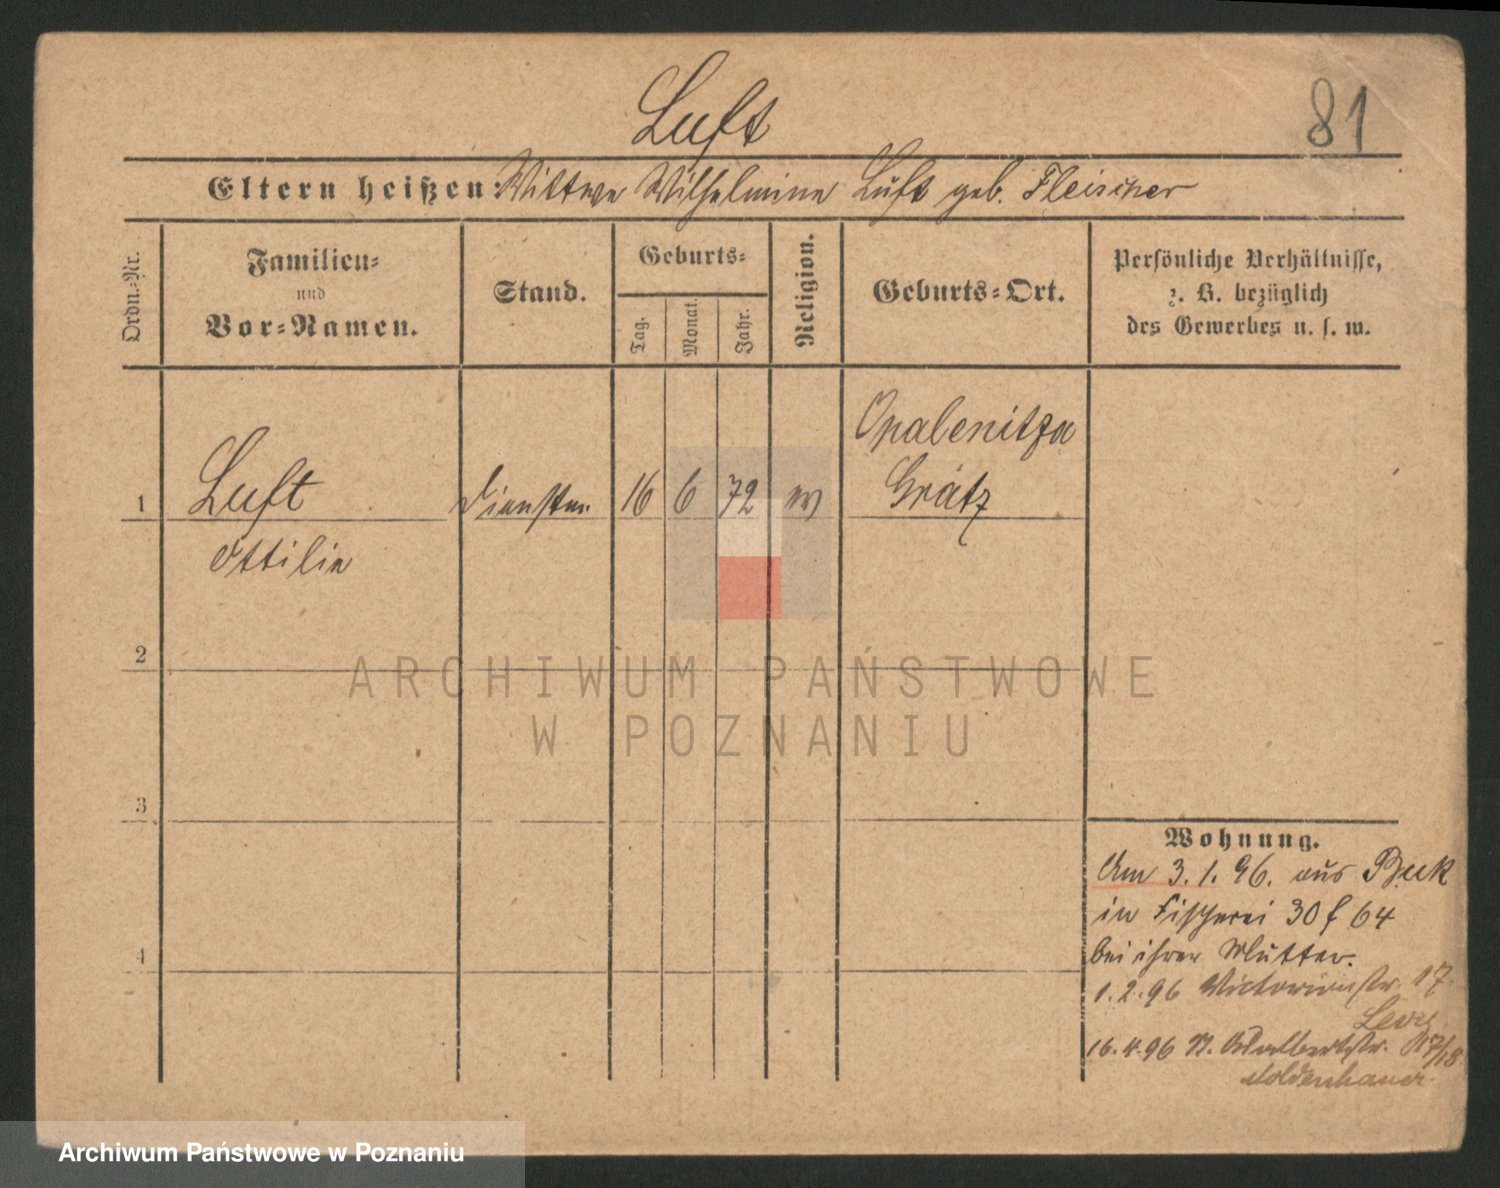 81
Luft
Eltern heißen: Wittwe Wilhelmine Luft geb. Fleischer
Ordn.-Nr.
Familien-
und
Vor-Namen.
Stand.
Geburts-
Tag.
Monat.
Jahr.
Religion.
Geburts-Ort.
Persönliche Verhältnisse,
z. B. bezüglich
des Gewerbes u. s. w.
Opalenitza
1 Luft Dienstm. 16 6 72 ev Grätz
Ottilie
2
ARCHIWUM PAŃSTWOWE
W POZNANIU
3
Wohnung.
Am 3.1.96. aus Buk
in Fischerei 30 f 64
4
bei ihrer Mutter.
1.2.96 Victoriastr. 17
Levy
16.4.96 St. Adalbertstr. 17/18
Moldenhauer
Archiwum Państwowe w Poznaniu